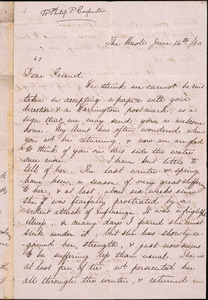 To Philip P Carpenter
The Knoll June 14th /60
Dear Friend
We think we cannot be mis
taken in accepting a paper with your
direction & a Warrington postmark, as a
sign that we may send you a welcome
home. My Aunt has often wondered when
you will be returning, & now we are glad
to think of you on this side the water
once more. I have but little to
tell of her. The last winter & spring
have been a season of very great suffering
to her, & last six weeks since
she was fearfully prostrated by a
violent attack of influenza. It was a frightful
illness, & many days I feared she would
sink under it, but she has slowly re
gained her strength, & just now seems
to be suffering less than usual. She is
at last free of the
all through the winter, & rendered